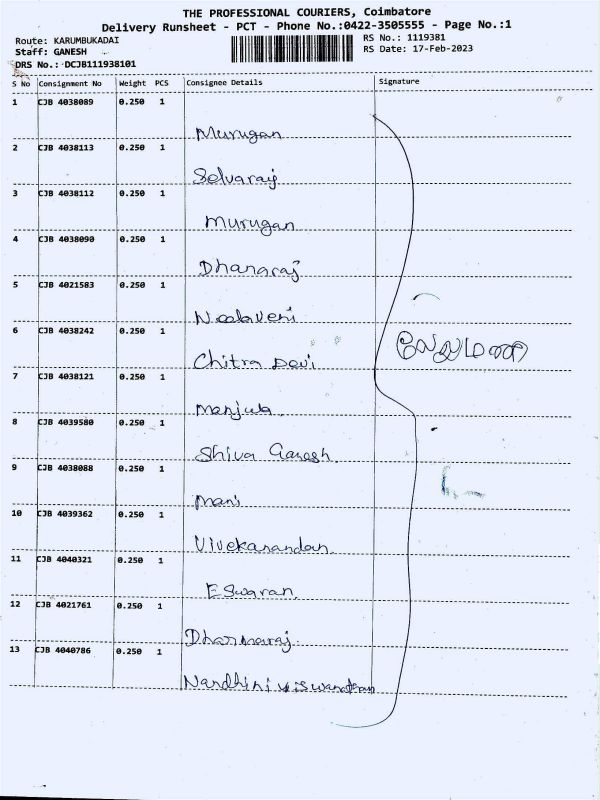 THE PROFESSIONAL COURIERS, Coimbatore
Delivery Runsheet - PCT - Phone No.:0422-3505555 - Page No.:1
Route: KARUMBUKADAI
RS No.: 1119381
Staff: GANESH
RS Date: 17-Feb-2023
DRS No.: DCJB111938101
S No Consignment No Weight PCS Consignee Details Signature
1 CJB 4038089 0.250 1
Murugan
2 CJB 4038113 0.250 1
Selvaraj
3 CJB 4038112 0.250 1
Murugan
4 CJB 4038090 0.250 1
Dhanaraj
5 CJB 4021583 0.250 1
Neelaveni
6 CJB 4038242 0.250 1
Chitra Devi
வேலுமணி
7 CJB 4038121 0.250 1
Manjula
8 CJB 4039580 0.250 1
Shiva Ganesh
9 CJB 4038088 0.250 1
Mani
10 CJB 4039362 0.250 1
Vivekanandan
11 CJB 4040321 0.250 1
Eswaran
12 CJB 4021761 0.250 1
Dharmaraj
13 CJB 4040786 0.250 1
Nandhini viswanathan